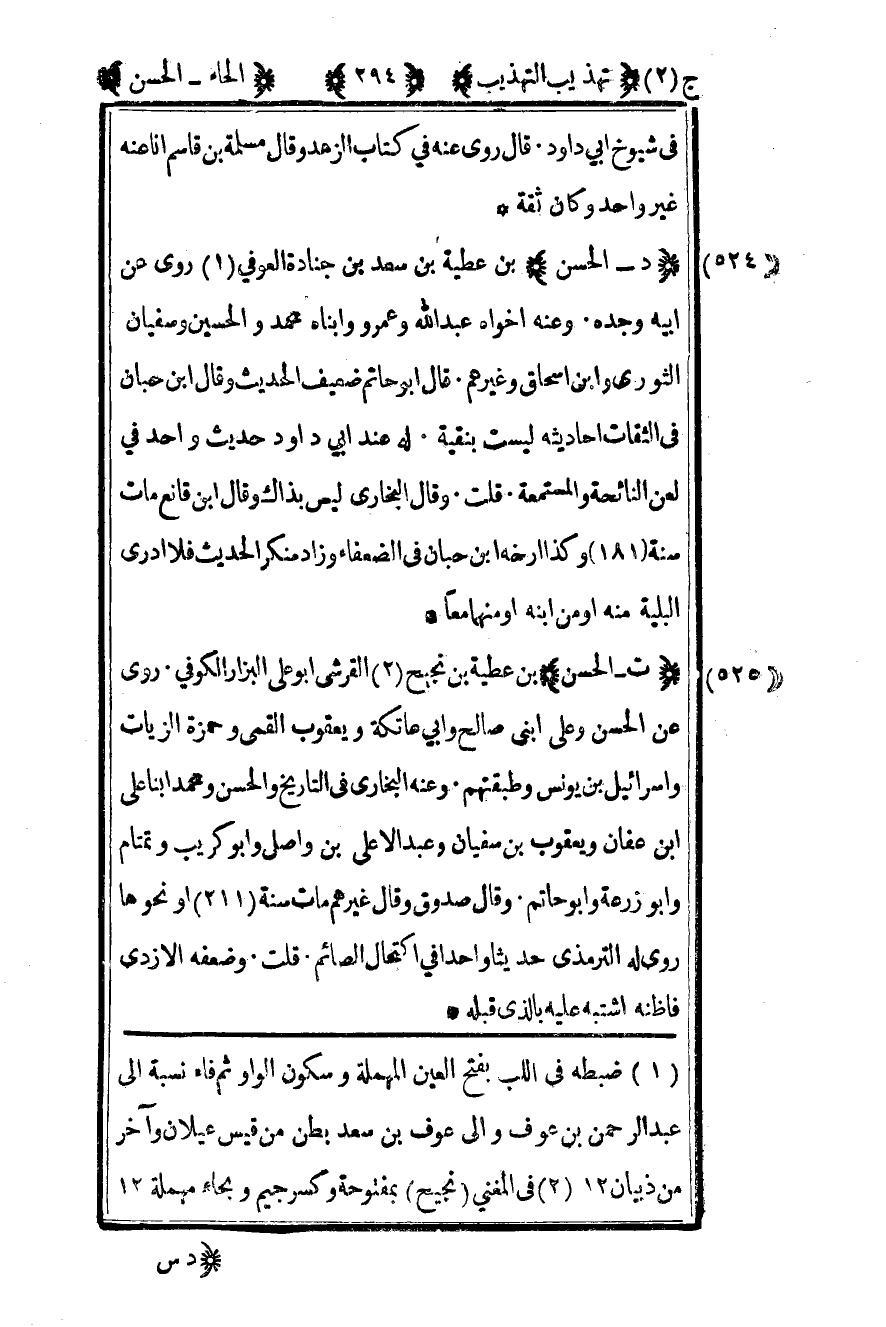 ج (٢) ﴿ تهذيب التهذيب ﴾ ﴿ ٢٩٤ ﴾ ﴿ الحاء ـ الحسن ﴾
فى شيوخ ابي داود · قال روى عنه في كتاب الزهد وقال مسلمة بن قاسم انا عنه
غير واحد وكان ثقة *
﴿٥٢٤﴾ ﴿ د ـ الحسن ﴾ بن عطية بن سعد بن جنادة العوفي (١) روى عن
ابيه وجده · وعنه اخواه عبدالله وعمرو وابناه محمد و الحسين وسفيان
الثورى وابن اسحاق وغيرهم · قال ابو حاتم ضعيف الحديث وقال ابن حبان
فى الثقات احاديثه ليست بنقية · له عند ابي داود حديث واحد في
لعن النائحة والمستمعة · قلت · وقال البخارى ليس بذاك وقال ابن قانع مات
سنة (١٨١) وكذا ارخه ابن حبان فى الضعفاء وزاد منكر الحديث فلا ادرى
البلية منه او من ابنه او منهما معاً *
﴿٥٢٥﴾ ﴿ ت ـ الحسن ﴾ بن عطية بن نجيح (٢) القرشى ابو على البزار الكوفي · روى
عن الحسن وعلى ابنى صالح وابي عاتكة ويعقوب القمى وحمزة الزيات
واسرائيل بن يونس وطبقتهم · وعنه البخارى فى التاريخ والحسن ومحمد ابنا على
ابن عفان ويعقوب بن سفيان وعبدالاعلى بن واصل وابو كريب وتمتام
وابو زرعة وابوحاتم · وقال صدوق وقال غيرهم مات سنة (٢١١) او نحوها
روى له الترمذى حديثا واحدا في اكتحال الصائم · قلت · وضعفه الازدى
فاظنه اشتبه عليه بالذى قبله *
(١) ضبطه فى اللب بفتح العين المهملة و سكون الواو ثم فاء نسبة الى
عبدالرحمن بن عوف و الى عوف بن سعد بطن من قيس عيلان وآخر
من ذبيان ١٢ (٢) فى المغني (نجيح) بمفتوحة وكسر جيم و بحاء مهملة ١٢
﴿ د س